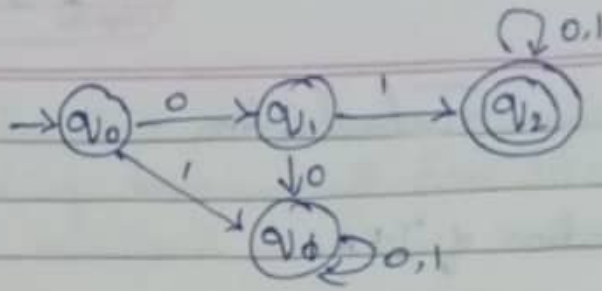 0,1
q₀ 0 q₁ 1 q₂
1 0
qϕ 0,1